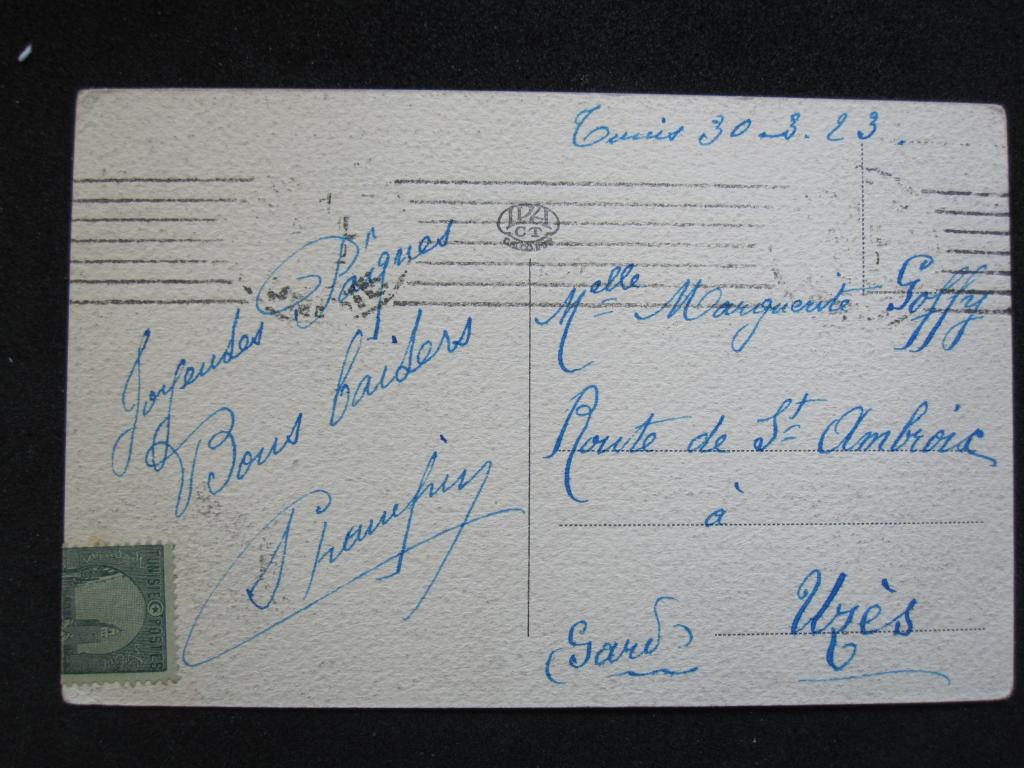 Tunis 30.3.23.
Joyeuses Pâques
Bons baisers
Melle Marguerite Goffy
Route de St Ambroix
à
Uzès
(Gard)
CT
TUNISIE POSTES